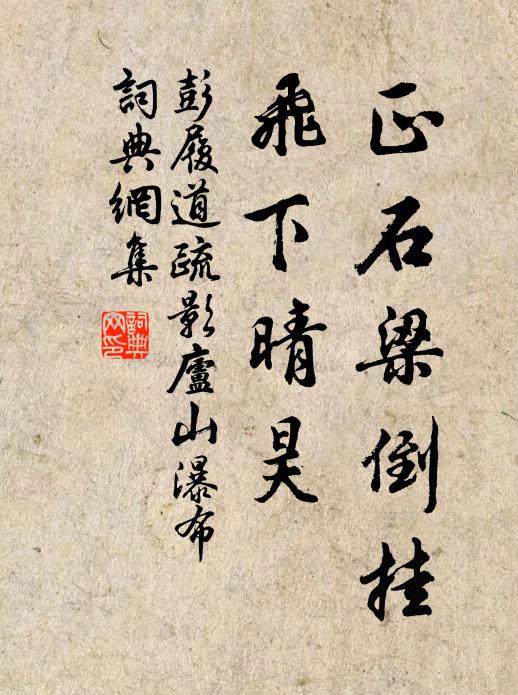 正石梁倒挂
飛下晴昊
彭履道疏影廬山瀑布
詞典網集
詞典
网印